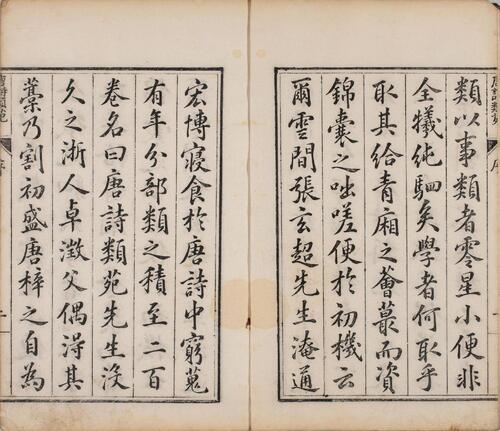 類以事類者零星小便非
全犧純駟矣學者何取乎
取其給青廂之薈蕞而資
錦囊之咄嗟便於初機云
爾雲間張玄超先生淹通
宏博寢食於唐詩中窮蒐
有年分部類之積至二百
卷名曰唐詩類苑先生沒
久之浙人卓澂父偶得其
藳乃割初盛唐梓之自為
唐詩類苑
序
二